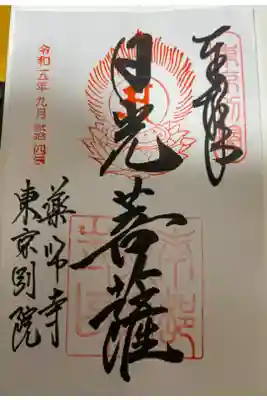 奉拝
東京別院
日光菩薩
令和五年九月拾四日
薬師寺
東京別院